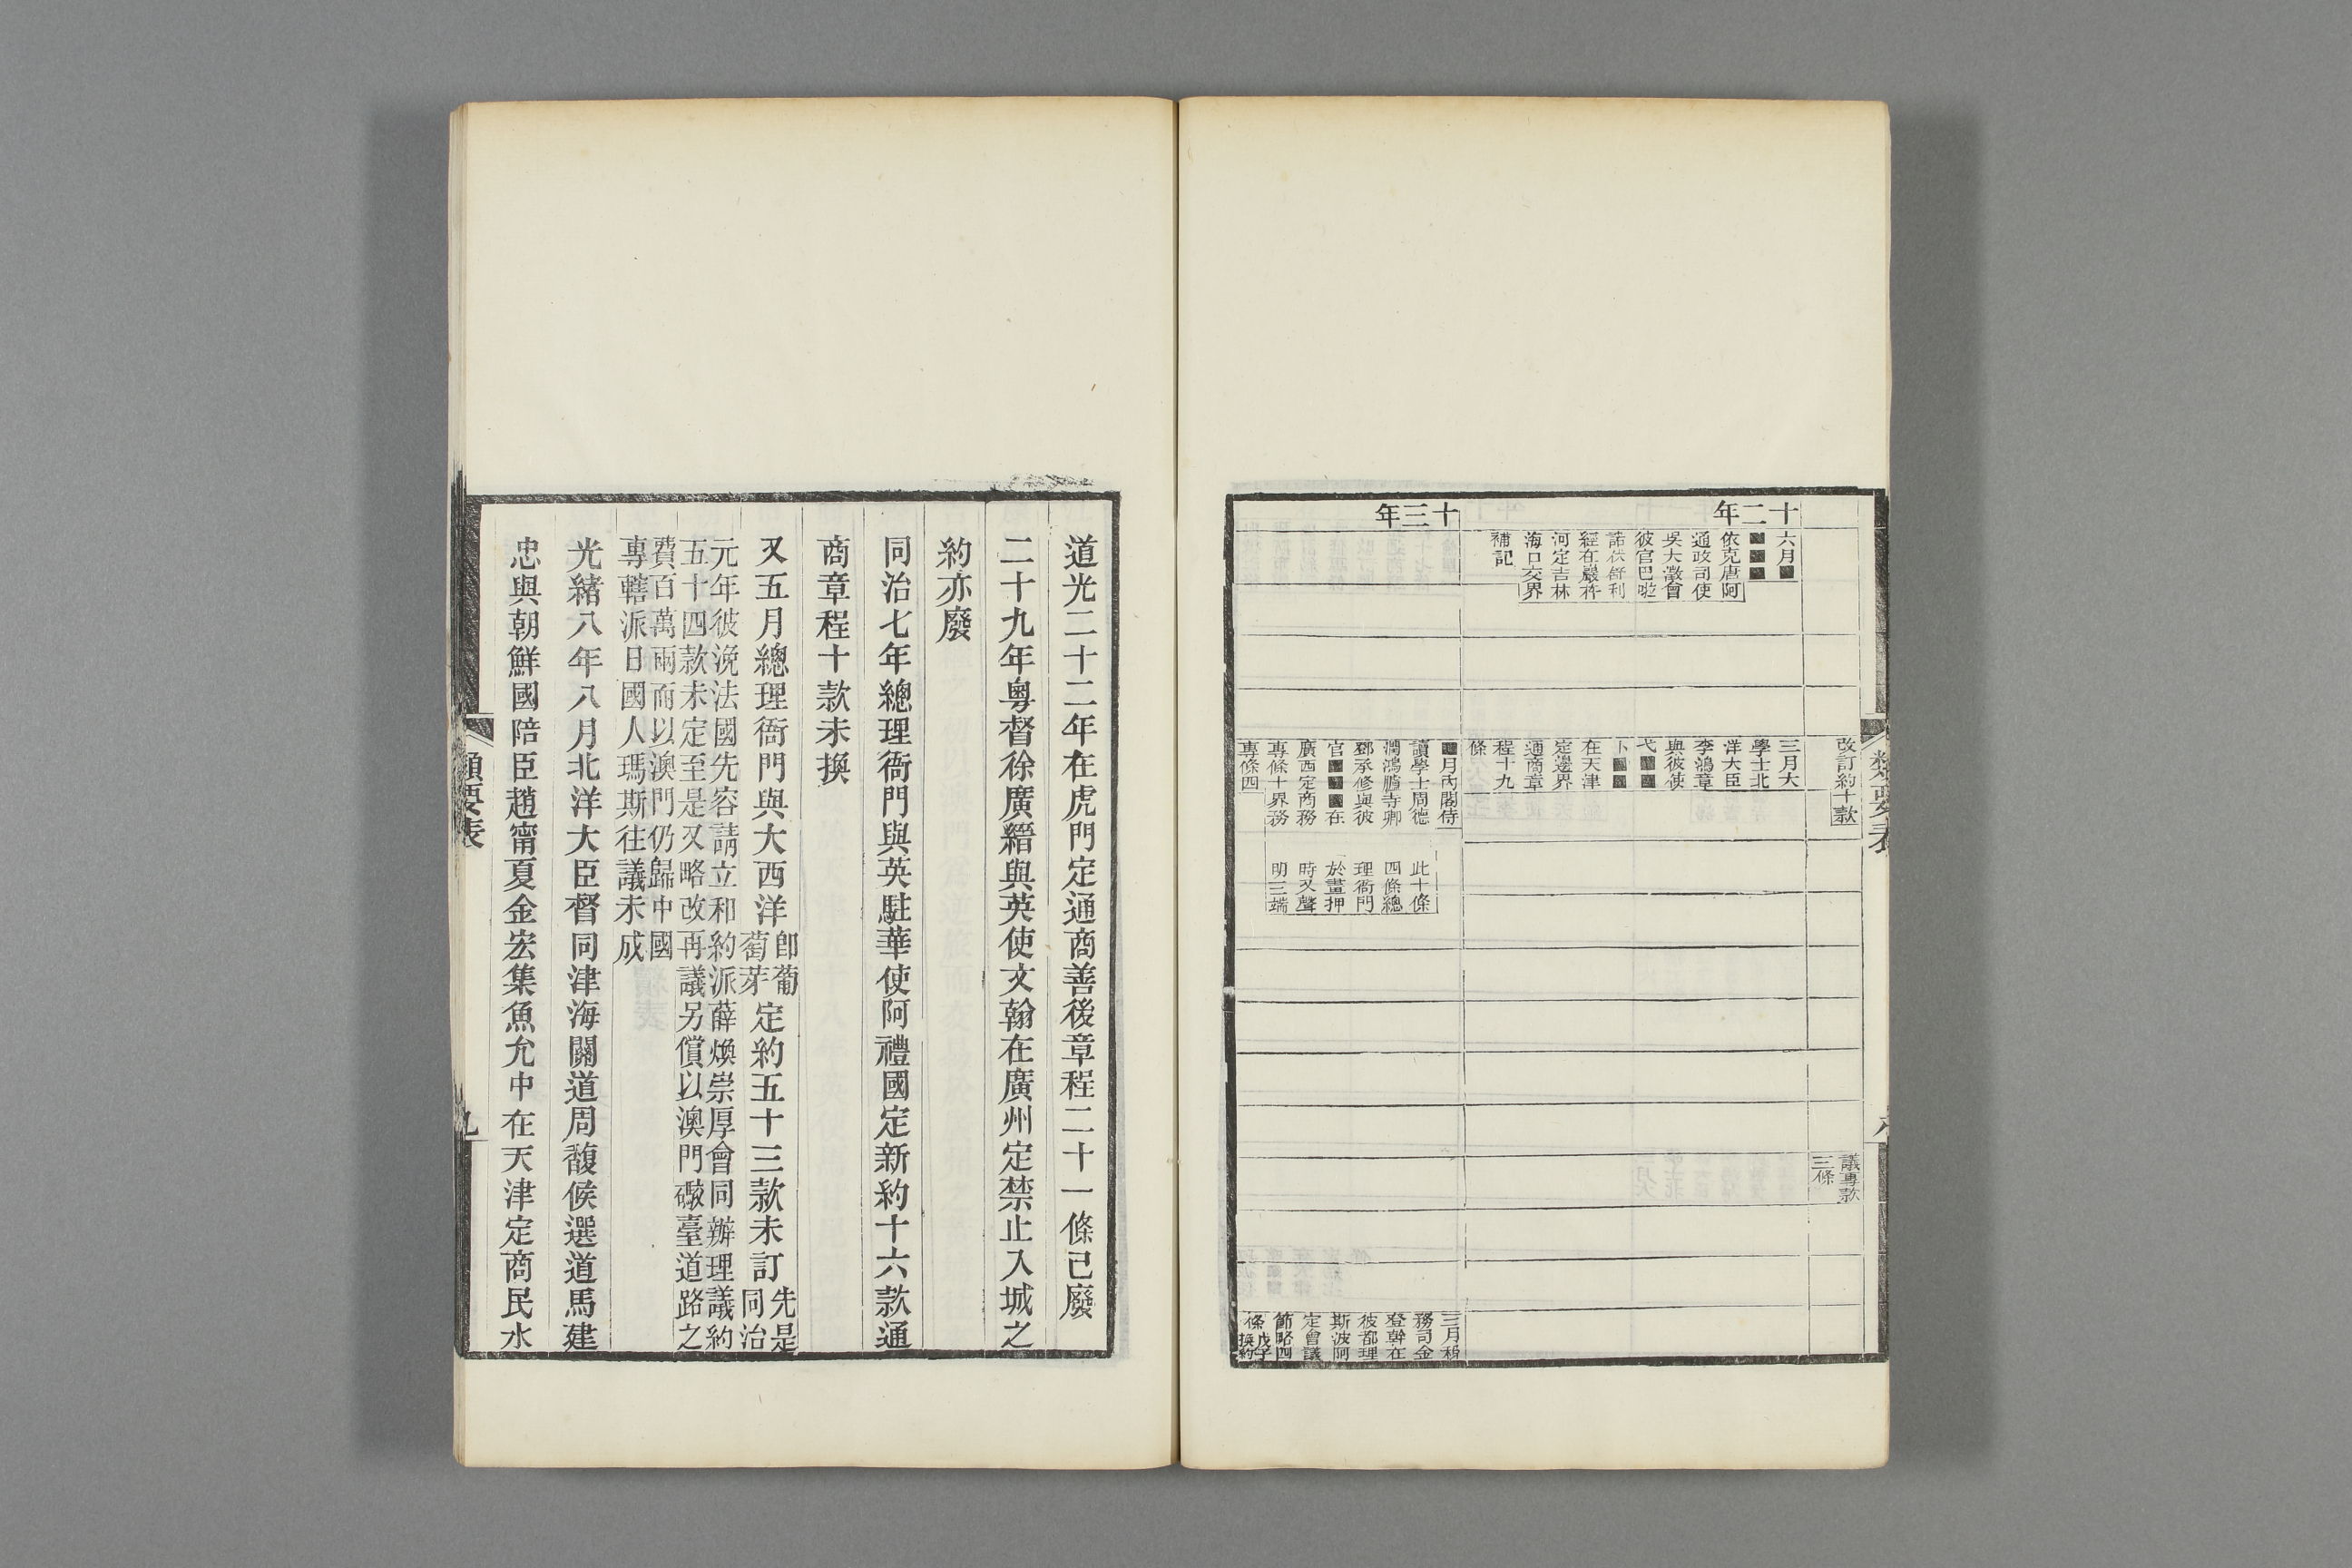 類要表
改訂約十
款
議專款
三條
十二年
六月■
■■■
依克唐阿
通政司使
吳大澂會
彼官巴啦
諾伕舒利
經在巖杵
河定吉林
海口交界
補記
三月大
學士北
洋大臣
李鴻章
與彼使
戈■■
卜■■
在天津
定邊界
通商章
程十九
條
十三年
■月內閣侍
讀學士周德
潤鴻臚寺卿
鄧承修與彼
官■■■在
廣西定商務
專條十界務
專條四
此十條
四條總
理衙門
於畫押
時又聲
明三端
三月稅
務司金
登幹在
彼都理
斯波阿
定會議
節略四
條戊子
換約
道光二十二年在虎門定通商善後章程二十一條已廢
二十九年粵督徐廣縉與英使文翰在廣州定禁止入城之
約亦廢
同治七年總理衙門與英駐華使阿禮國定新約十六款通
商章程十款未換
又五月總理衙門與大西洋卽葡萄芽定約五十三款未訂先是同治
元年彼浼法國先容請立和約派薛煥崇厚會同辦理議約
五十四款未定至是又略改再議另償以澳門礮臺道路之
費百萬兩而以澳門仍歸中國
專轄派日國人瑪斯往議未成
光緒八年八月北洋大臣督同津海關道周馥候選道馬建
忠與朝鮮國陪臣趙甯夏金宏集魚允中在天津定商民水
類要表
九